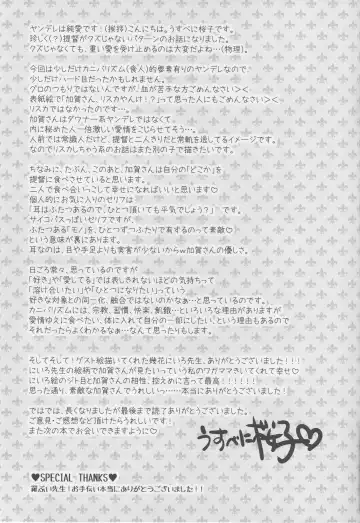 ヤンデレは純愛です！(挨拶)こんにちは。うすべに桜子です。
珍しく(？)提督がクズじゃないパターンのお話になりました。
クズじゃなくても、重い愛を受け止めるのは大変だよね…(物理)。
今回は少しだけカニバリズム(食人)的要素有りのヤンデレなので、
少しだけハード目だったかもしれません。
グロのつもりではないんですが、血が苦手な方ごめんなさい＞＜
表紙絵で「加賀さん、リスカやんけ！？」って思った人にもごめんなさい＞＜
リスカではなかったのです…。
加賀さんはダウナー系ヤンデレではなくて、
内に秘めた人一倍激しい愛情をこじらせてそう…。
人前では常識人だけど、提督と二人きりだと常軌を逸してるイメージです。
なのでリスカしちゃう系のお話はまた別の子で描きたいです。
ちなみに、たぶん、このあと、加賀さんは自分の「どこか」を、
提督に食べさせていると思います。
二人で食べ合いっこして幸せになればいいと思います♡
個人的にお気に入りのセリフは
「耳はふたつあるので、ひとつ頂いても平気でしょう？」です。
サイコパスっぽいセリフですが、
ふたつある「モノ」を、ひとつずつふたりで有するのって素敵♡
という意味が裏にあります。
耳なのは、目や手足よりも実害が少ないからw加賀さんの優しさ。
日ごろ常々、思っているのですが
「好き」や「愛してる」では表しきれないほどの気持ちって
「溶け合いたい」や「ひとつになりたい」っていう
好きな対象との同一化、融合ではないのかなぁ…と思っているです。
カニバリズムには、宗教、習慣、快楽、飢餓…といろいろな理由がありますが、
愛情ゆえに食べたい、体に入れて自分の一部にしたい！という理由もあるので
それだったらよくわかるなぁ…なんて思ったりもします。
そしてそして！ゲスト絵描いてくれた幾花にいろ先生、ありがとうございました！！！
にいろ先生の絵柄で加賀さんが見たいっていう私のワガママきいてくれて幸せ♡
にいろ絵のジト目と加賀さんの相性、控えめに言って最高！！！！！！
思った通り、素敵な加賀さんでうれしい♡♡……本当にありがとうございました！
ではでは、長くなりましたが最後まで読了ありがとうございました。
ご意見・ご感想など頂けたらうれしいです！
また次の本でお会いできますように♡
うすべに桜子♡
♥SPECIAL THANKS♥
先生！お手伝い本当にありがとうございました！！